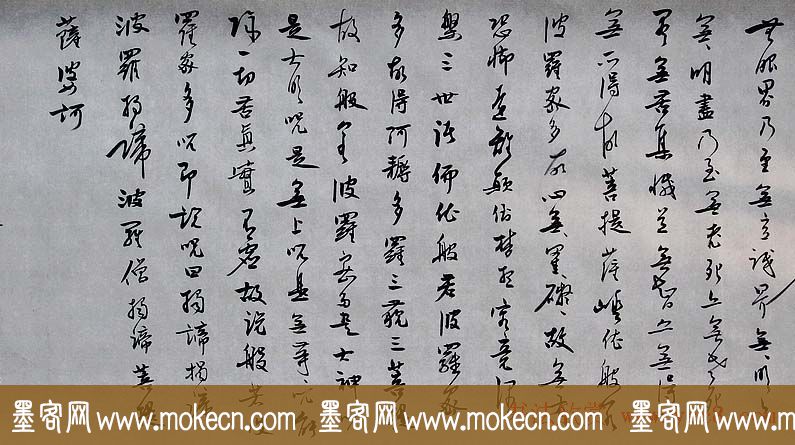 无眼界乃至無意識界無無明亦
無無明盡乃至無老死亦無老死
盡無苦集滅道無智亦無得
無所得故菩提薩埵依般若
波羅蜜多故心無罣礙故無有
恐怖遠離顛倒夢想究竟涅
槃三世諸佛依般若波羅蜜
多故得阿耨多羅三藐三菩提
故知般若波羅蜜多是大神
是大明咒是無上咒是無等々咒能
除一切苦真實不虛故說般若波
羅蜜多咒即說咒曰揭諦揭諦
波羅揭諦波羅僧揭諦菩提
薩婆訶
墨客网 www.mokecn.com 墨客网 www.mokecn.com 墨客网 www.mokecn.com